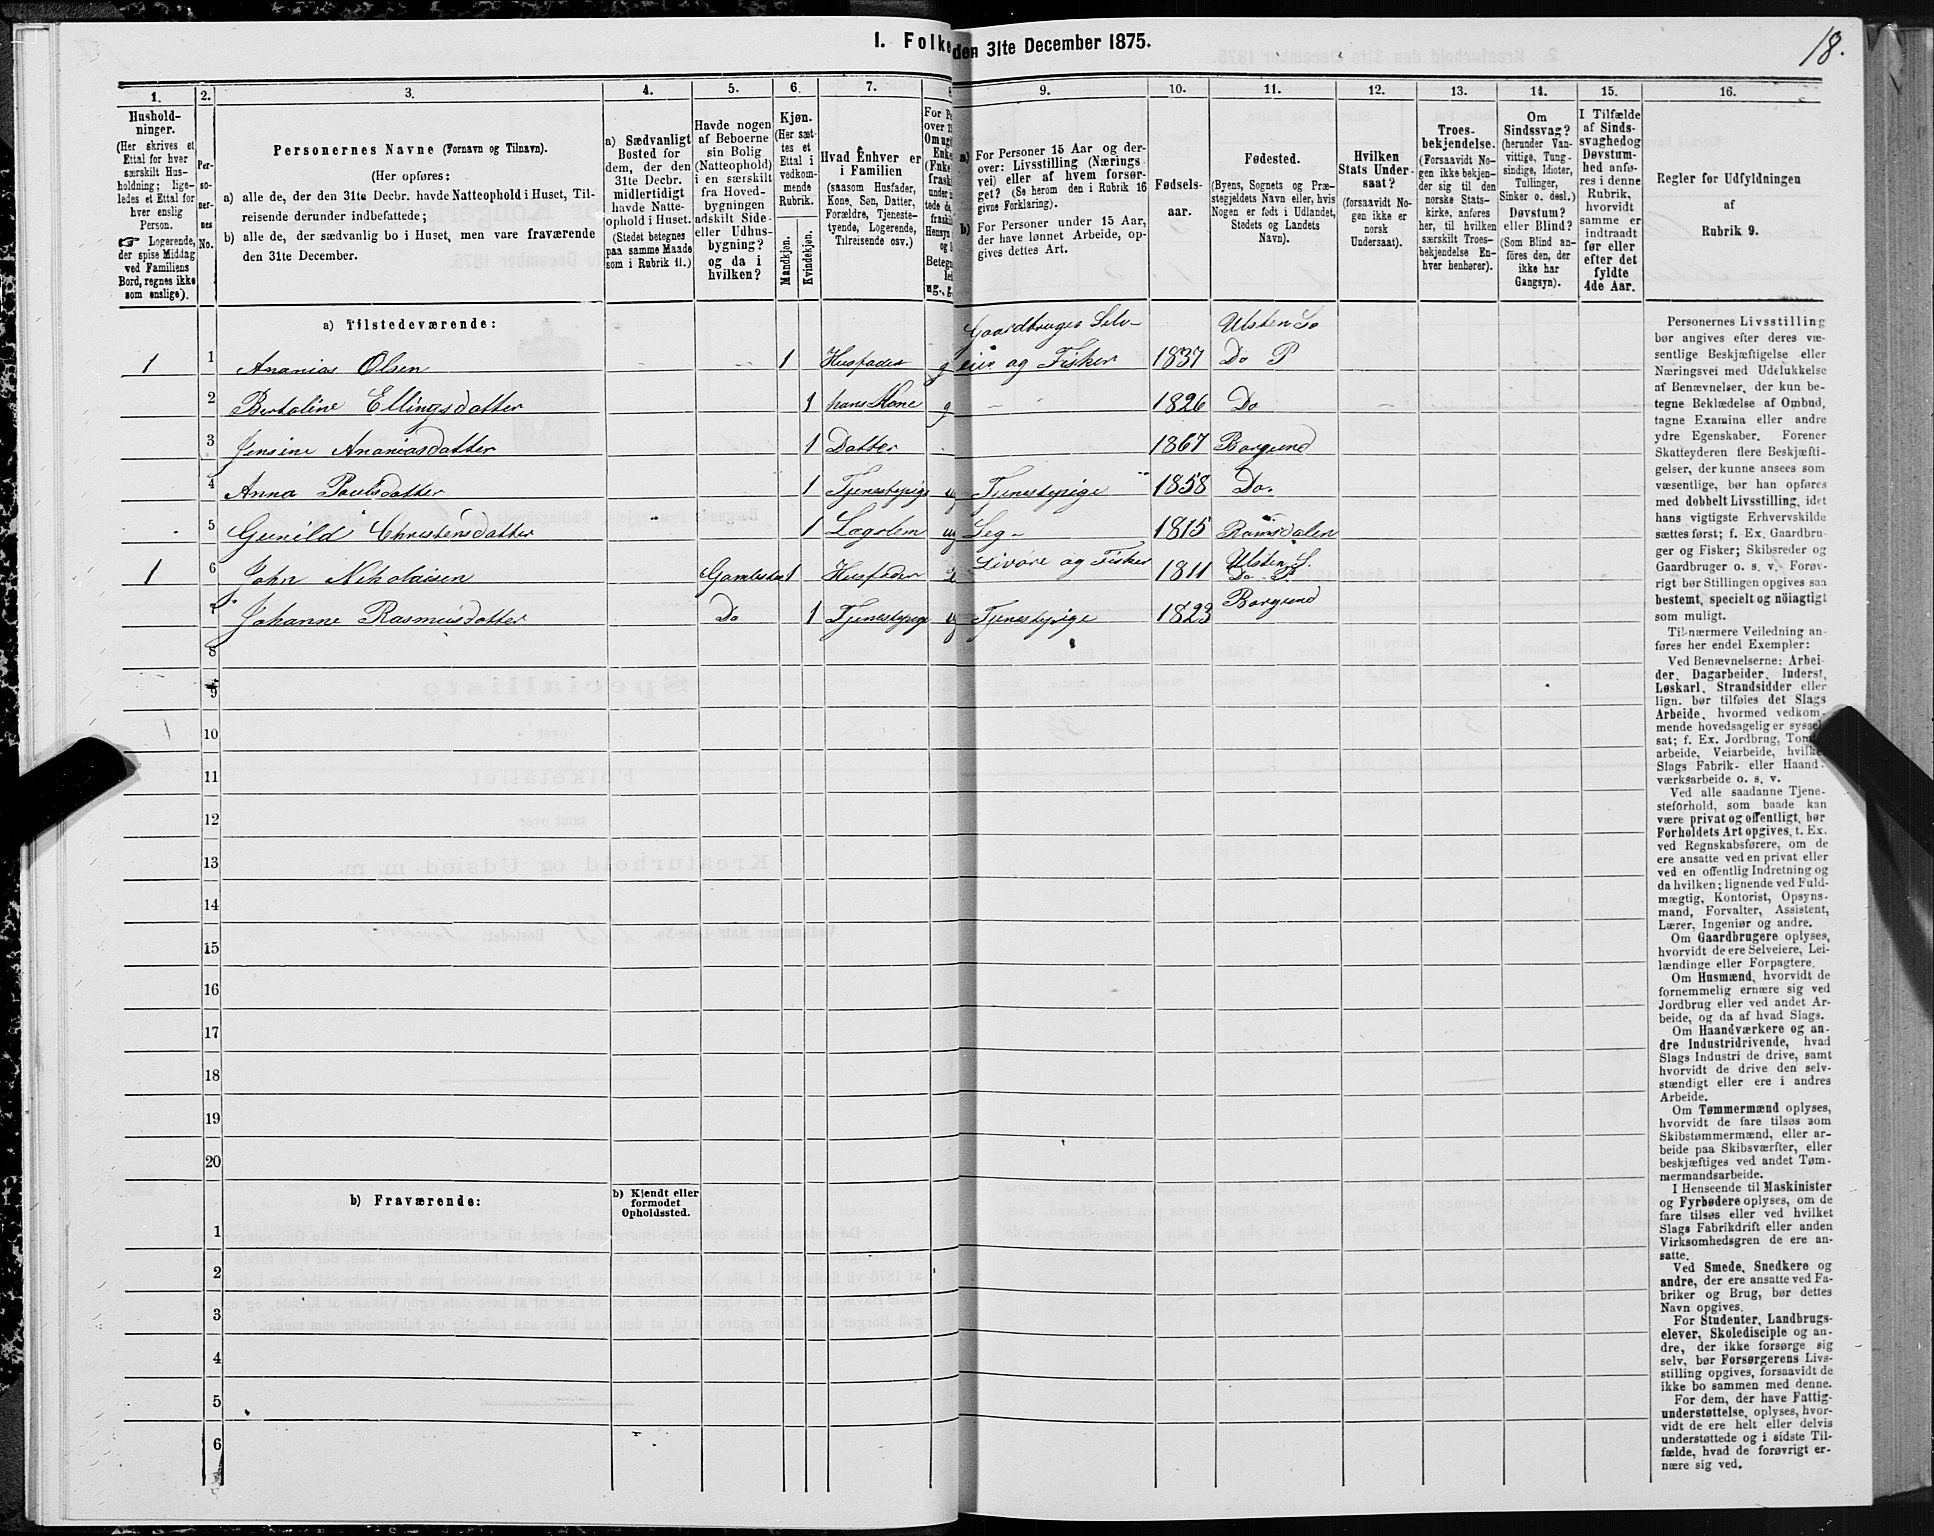 18.
I. Folke
den 31te December 1875.
1. 2. 3. 4. 5. 6. 7. 8 9. 10. 11. 12. 13. 14. 15. 16.
Hushold-
ninger.
(Her skrives et
Ettal for hver
særskilt Hus-
holdning; lige-
ledes et Ettal for
hver enslig
Person.
☞ Logerende,
der spise Middag
ved Familiens
Bord, regnes ikke
som enslige).
Per-
so-
ner-
nes
No.
Personernes Navne (Fornavn og Tilnavn).
(Her opføres:
a) alle de, der den 31te Decbr. havde Natteophold i Huset, Til-
reisende derunder indbefattede;
b) alle de, der sædvanlig bo i Huset, men vare fraværende
den 31te December.
a) Sædvanligt
Bosted for
dem, der den
31te Decbr.
midlertidigt
havde Natte-
ophold i Huset.
(Stedet betegnes
paa samme Maade
som i Rubrik 11.)
Havde nogen
af Beboerne
sin Bolig
(Natteophold)
i en særskilt
fra Hoved-
bygningen
adskilt Side-
eller Udhus-
bygning?
og da i
hvilken?
Kjøn.
(Her sæt-
tes et
Ettal i
vedkom-
mende
Rubrik.
Mandkjøn.
Kvindekjøn.
Hvad Enhver er
i Familien
(saasom Husfader,
Kone, Søn, Datter,
Forældre, Tjeneste-
tyende, Logerende,
Tilreisende osv.)
For P
over 1
Om ug
Enke
(Enke
frask
under
tede de
frask
Hensyn
og
Betegn
ug., g.
a) For Personer 15 Aar og der-
over: Livsstilling (Nærings
vei) eller af hvem forsør-
get? (Se herom den i Rubrik 16
givne Forklaring).
b) For Personer under 15 Aar,
der have lønnet Arbeide, op-
gives dettes Art.
Fødsels-
aar.
Fødested.
(Byens, Sognets og Præ-
stegjeldets Navn eller, hvis
Nogen er født i Udlandet,
Stedets og Landets
Navn).
Hvilken
Stats Under-
saat?
(forsaavidt No-
gen ikke er
norsk
Undersaat).
Troes-
bekjendelse.
(Forsaavidt No-
gen ikke bekjen-
der sig til den
norske Stats-
kirke, anføres
her, til hvilken
særskilt Troes-
bekjendelse En-
hver henhører).
Om
Sindssvag?
(herunder Van-
vittige, Tung-
sindige, Idioter,
Tullinger,
Sinker o. desl.)
Døvstum?
eller Blind?
(Som Blind an-
føres den, der
ikke har
Gangsyn).
I Tilfælde
af Sinds-
svaghedog
Døvstum-
hed anfø-
res i denne
Rubrik,
hvorvidt
samme er
indtraadt
før eller
efter det
fyldte
4de Aar.
Regler for Udfyldningen
af
Rubrik 9.
a) Tilstedeværende:
Gaardbruger Selv- Ulsten So
1 1 Ananias Olsen 1 Husfader g eier og Fisker 1837 Do P
2 Bertoline Ellingsdatter 1 hans Kone g 1826 Do
3 Jensine Ananiasdatter 1 Datter 1867 Borgund
4 Anna Poulsdatter 1 Tjenestepige ug Tjenestepige 1858 Do.
5 Gunild Christensdatter 1 Lægslem ug Leg- 1815 Romsdalen
1 6 John Nikolaisen 1 Husfader og Fisker 1811 Ulsten S.
Do P
7 Johanne Rasmusdatter Do 1 Tjenestepige ug Tjenestepige 1823 Borgund
8
9
10
11
12
13
14
15
16
17
18
19
20
b) Fraværende:
b) Kjendt eller
formodet
Opholdssted.
1
2
3
4
5
6
Personernes Livsstilling
bør angives efter deres væ-
sentlige Beskjæftigelse eller
Næringsvei med Udelukkelse
af Benævnelser, der kun be-
tegne Beklædelse af Ombud,
tagne Examina eller andre
ydre Egenskaber. Forener
Skatteyderen flere Beskjæfti-
gelser, der kunne ansees som
væsentlige, bør han opføres
med dobbelt Livsstilling, idet
hans vigtigste Erhvervskilde
sættes først; f. Ex. Gaardbru-
ger og Fisker; Skibsreder og
Gaardbruger o. s. v. Forøv-
rigt bør Stillingen opgives saa
bestemt, specielt og nöiagtigt
som muligt.
Til nærmere Veiledning an-
føres her endel Exempler:
Ved Benævnelserne: Arbei-
der, Dagarbeider, Inderst,
Løskarl, Strandsidder eller
lign. bør tilføies det Slags
Arbeide, hvormed vedkom-
mende hovedsagelig er syssel-
sat; f. Ex. Jordbrug, Tom
arbeide, Veiarbeide, hvilket
Slags Fabrik- eller Haand-
værksarbeide o. s. v.
Ved alle saadanne Tjene-
steforhold, som baade kan
være privat og offentligt, bør
Forholdets Art opgives, t. Ex.
ved Regnskabsførere, om de
ere ansatte ved en privat eller
ved en offentlig Indretning og
da hvilken; lignende ved Fuld-
mægtig, Kontorist, Opsyns-
mand, Forvalter, Assistent,
Lærer, Ingeniør og andre.
Om Gaardbrugere oplyses,
hvorvidt de ere Selveiere, Lei-
lændinge eller Forpagtere.
Om Husmænd, hvorvidt de
fornemmelig ernære sig ved
Jordbrug eller ved andet Ar-
beide, og da af hvad Slags.
Om Haandværkere og an-
dre Industridrivende, hvad
Slags Industri de drive, samt
hvorvidt de drive den selv-
stændigt eller ere i andres
Arbeide.
Om Tømmermænd oplyses,
hvorvidt de fare tilsøs som
Skibstømmermænd, eller ar-
beide paa Skibsværfter, eller
beskjæftiges ved andet Tøm-
mermandsarbeide.
I Henseende til Maskinister
og Fyrbødere oplyses, om de
fare tilsøs eller ved hvilket
Slags Fabrikdrift eller anden
Virksomhedsgren de ere an-
satte.
Ved Smede, Snedkere og
andre, der ere ansatte ved Fa-
briker og Brug, bør dettes
Navn opgives.
For Studenter, Landbrugs-
elever, Skoledisciple og an-
dre, der ikke forsørge sig
selv, bør Forsørgerens Livs-
stilling opgives, forsaavidt de
ikke bo sammen med denne.
For dem, der have Fattig-
understøttelse, oplyses, hvor-
vidt de ere helt eller delvis
understøttede og i sidste Til-
fælde, hvad de forøvrigt er-
nære sig ved.